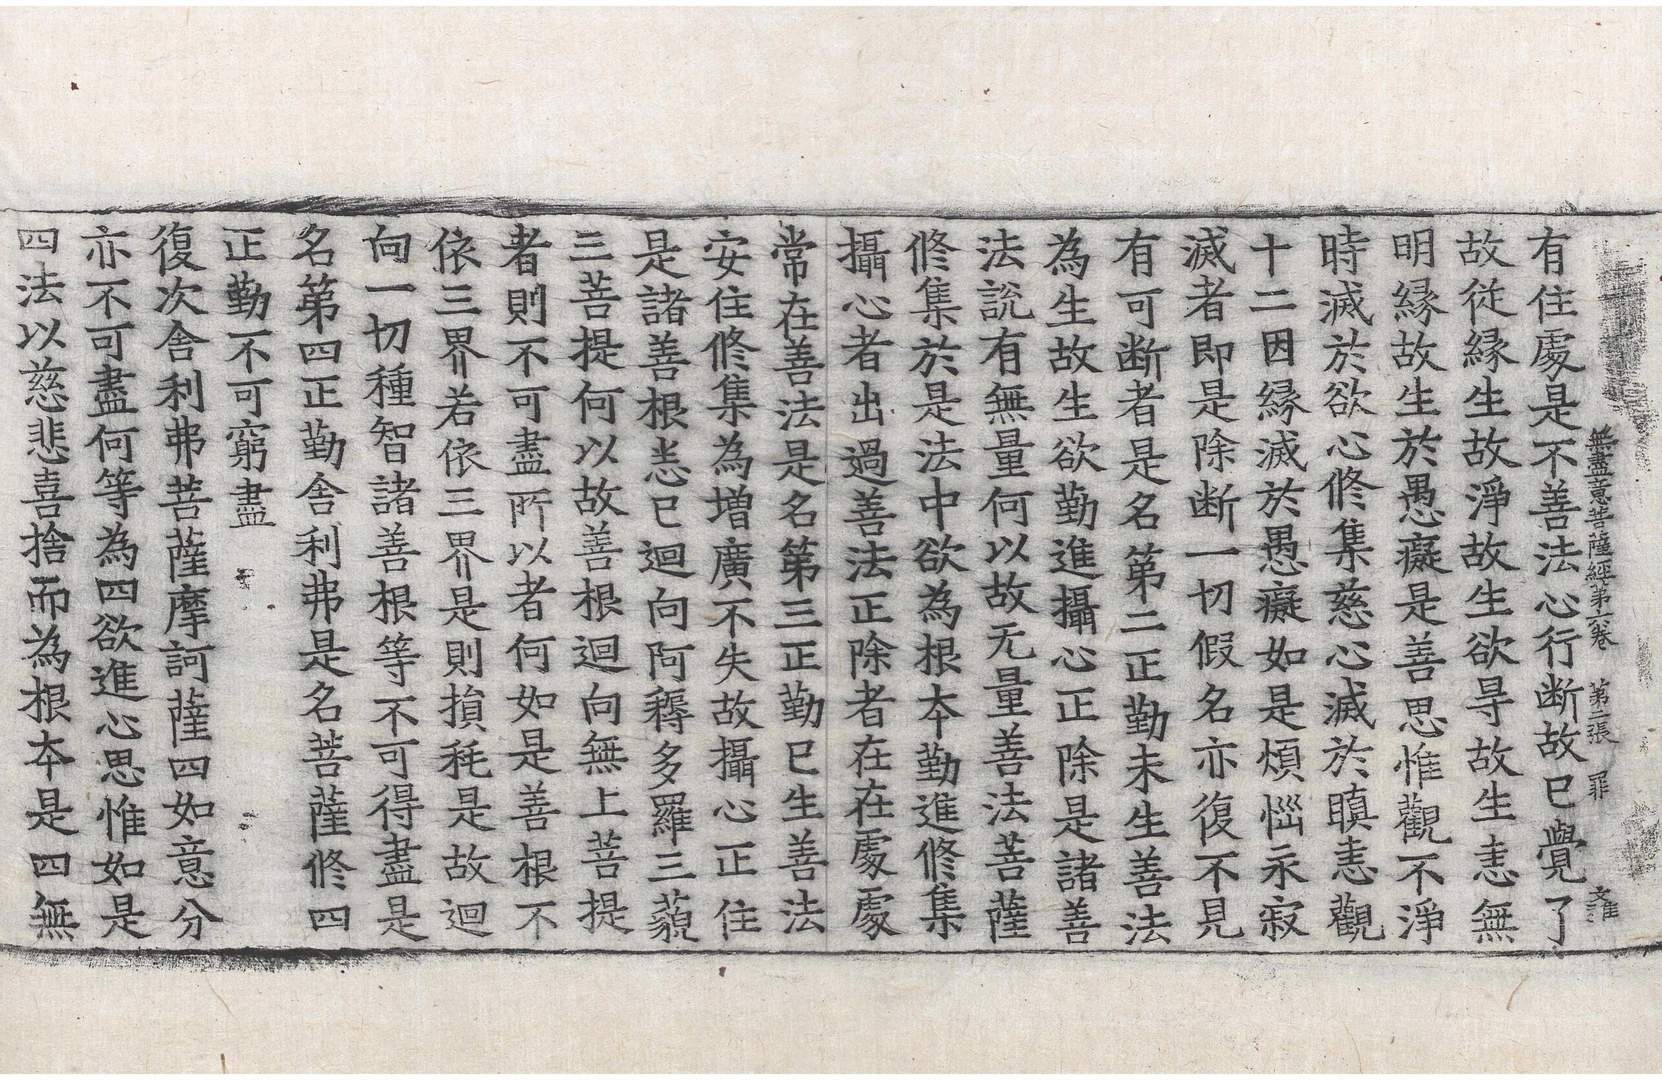 無盡意菩薩經第六卷 第二張 罪
有住處是不善法心行断故已覺了
故從縁生故淨故生欲㝵故生恚無
明縁故生於愚癡是善思惟觀不淨
時滅於欲心修集慈心滅於瞋恚觀
十二因縁滅於愚癡如是煩惱永寂
滅者即是除断一切假名亦復不見
有可断者是名第二正勤未生善法
為生故生欲勤進攝心正除是諸善
法說有無量何以故无量善法菩薩
修集於是法中欲為根本勤進修集
攝心者出過善法正除者在在處處
常在善法是名第三正勤已生善法
安住修集為增廣不失故攝心正住
是諸善根悉已迴向阿耨多羅三藐
三菩提何以故善根迴向無上菩提
者則不可盡所以者何如是善根不
依三界若依三界是則損秏是故迴
向一切種智諸善根等不可得盡是
名第四正勤舍利弗是名菩薩修四
正勤不可窮盡
復次舍利弗菩薩摩訶薩四如意分
亦不可盡何等為四欲進心思惟如是
四法以慈悲喜捨而為根本是四無